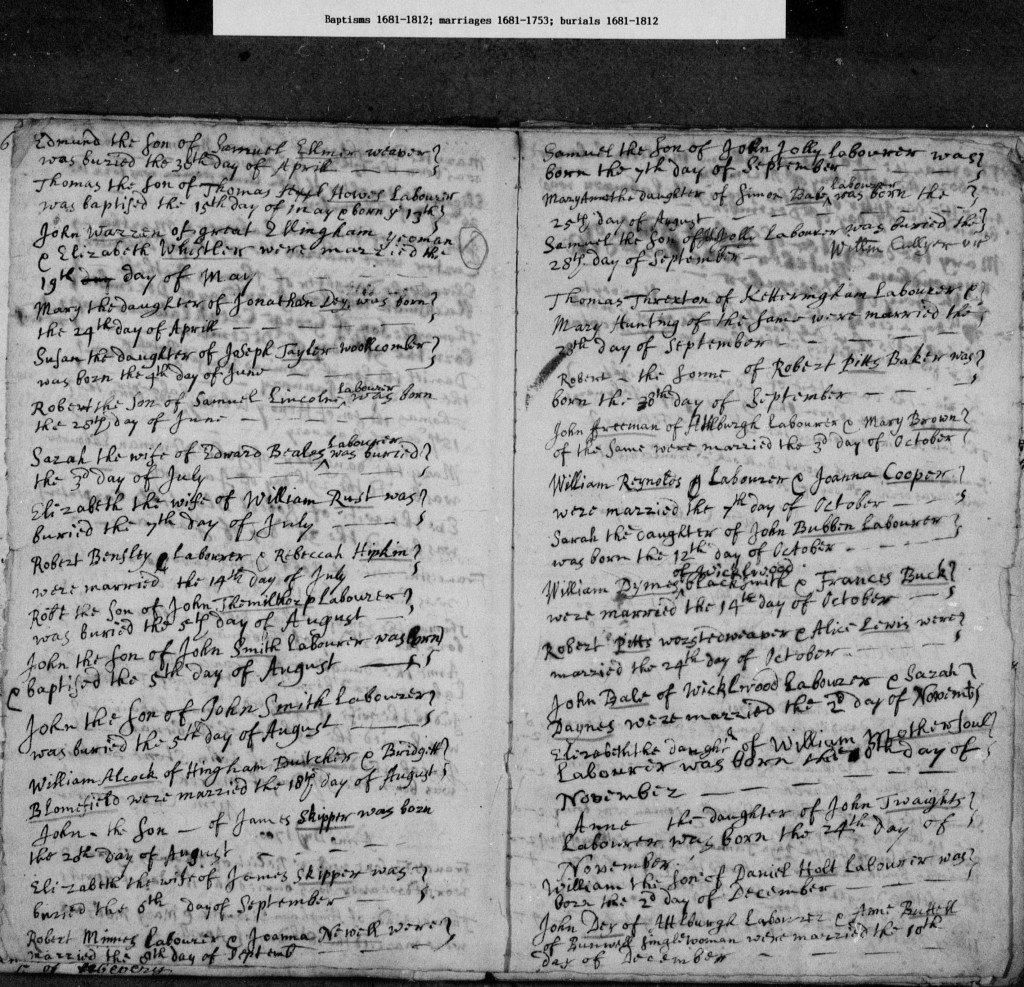 Baptisms 1681-1812; marriages 1681-1753; burials 1681-1812
6
Edmund the son of Samuel Ellmer weaver
was buried the 30th day of April
Thomas the son of Thomas Howes Labourer
was baptised the 15th day of may & born ye 13th
John Warren of great Ellingham yeoman
& Elizabeth Whistler were married the
19th day of May
Mary the daughter of Jonathan Dey was born
the 24th day of April
Susan the daughter of Joseph Taylor woolcomber
was born the 4th day of June
Robert the son of Samuel Lincolne Labourer was born
the 25th day of June
Sarah the wife of Edward Beales Labourer was buried
the 3d day of July
Elizabeth the wife of William Rust was
buried the 7th day of July
Robert Bensley Labourer & Rebeccah Hipkin
were married the 14th day of July
Robt the Son of John Labourer
was buried the 5th day of August
John the son of John Smith Labourer was born
& baptised the 5th day of August
John the son of John Smith Labourer
was buried the 5th day of August
William Alcock of Hingham Butcher & Bridgett
Blomefield were married the 18th day of August
John - the son - of James Skipper was born
the 28th day of August
Elizabeth the wife of James Skipper was
buried the 6th day of September
Robert Minnes Labourer & Joanna Newell were
married the 8th day of Septemb
Samuel the son of John Jolly Labourer was
born the 7th day of September
Mary Anne the daughter of Simon Labourer was born the
25th day of August
Samuel the son of Jolly Labourer was buried the
28th day of September Willm Collyer vic
Thomas Threxton of Ketteringham Labourer &
Mary Hunting of the same were married the
28th day of September
Robert - the sonne of Robert Pitts Baker was
born the 30th day of September
John ffreeman of Attlburgh Labourer & Mary Brown
of the same were married the 3d day of October
William Reynolds Labourer & Joanna Cooper
were married the 7th day of October
Sarah the daughter of John Bubben Labourer
was born the 12th day of October
of Wicklwood
William Dymes blacksmith & Frances Buck
were married the 14th day of October
Robert Pitts worstedweaver & Alice Lewis were
married the 24th day of October
John Dale of Wicklwood Labourer & Sarah
Daynes were married the 2d day of Novemb
Elizabeth the daught of William Mothersoul
Labourer was born the day of
November
Anne the daughter of John Twaights
Labourer was born the 24th day of
November
William the son of Daniel Holt Labourer was
born the 2d day of December
John Dey of Attlburgh Labourer & Anne Buttell
of Bunwell singlewoman were married the 10th
day of December